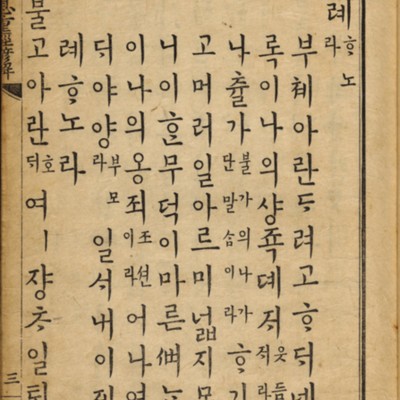 례ᄒᆞ노라
부톄아란ᄃᆞ려고ᄒᆞᄃᆡ네
록이나의샹죡뎨저
나츌가불가의나가단말솜이라ᄒᆞ기
고머러일아르미넓지모
니이ᄒᆞᆫ무덕이마른ᄲᅧ는
이나의옹죄조션이라어나여
ᄃᆡ야양부모라일서내이
례ᄒᆞ노라
불고아란호ᄃᆡ여ㅣ쟝ᄎᆞ일퇴
三